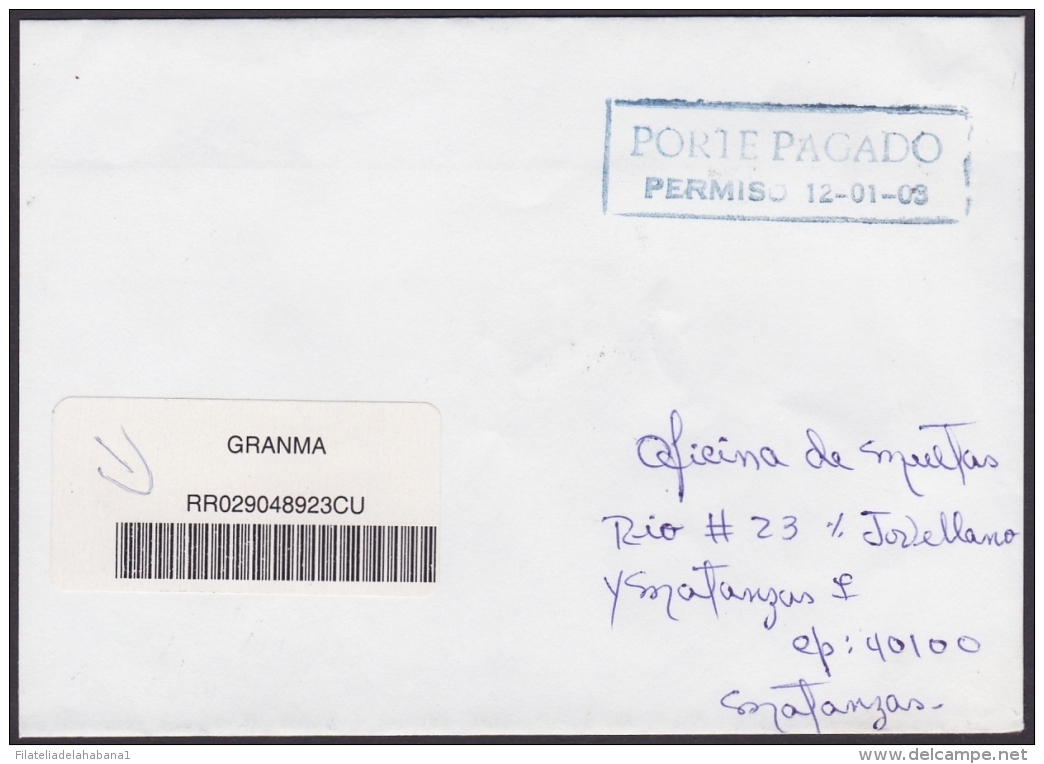 PORTE PAGADO
PERMISO 12-01-03
GRANMA
RR029048923CU
Oficina de Multas
Rio # 23 % Jovellano
y Matanzas
cp: 40100
Matanzas.
Filateliadelahabana1
www.delcampe.net